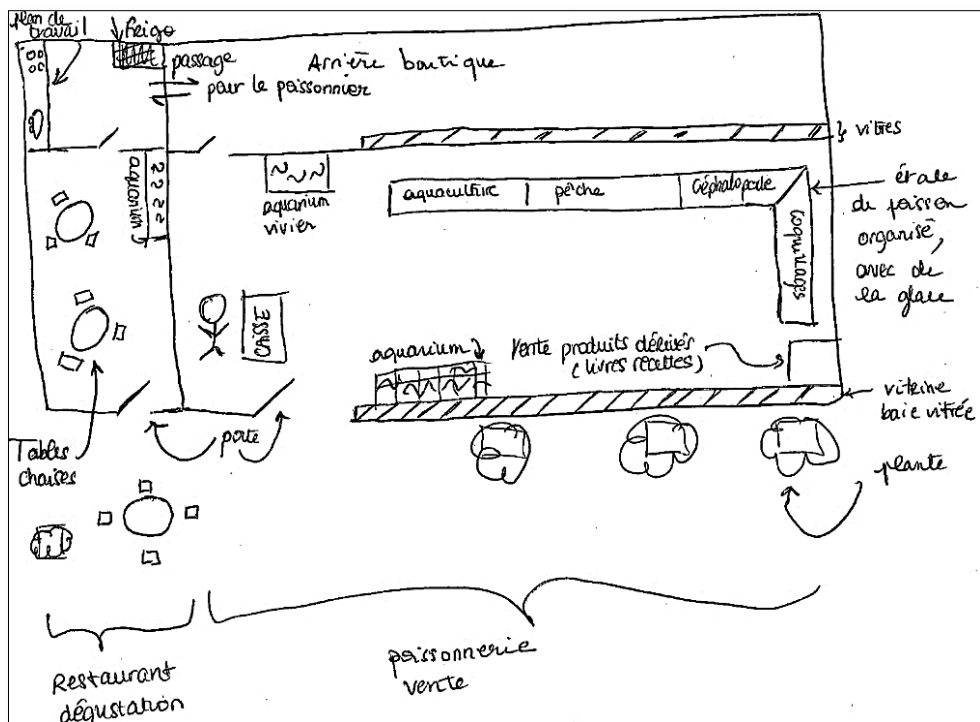 plan de
travail
frigo
passage
pour le poissonnier
Arrière boutique
vitres
aquarium
aquarium
vivier
aquaculture
pêche
Céphalopode
coquillages
étale
de poisson
organisé,
avec de
la glace
CAISSE
aquarium
Vente produits dérivés
(livres recettes)
vitrine
baie vitrée
porte
Tables
chaises
plante
Restaurant
dégustation
poissonnerie
vente